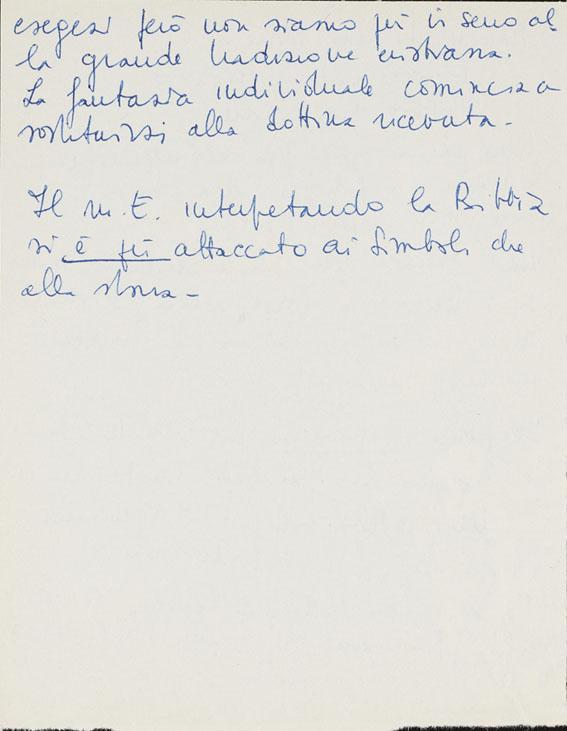 esegesi però non siamo più in seno al
la grande tradizione cristiana.
La fantasia individuale comincia a
sostituirsi alla dottrina ricevuta -
Il M. E. interpretando la Bibbia
si è più attaccato ai simboli che
alla storia -